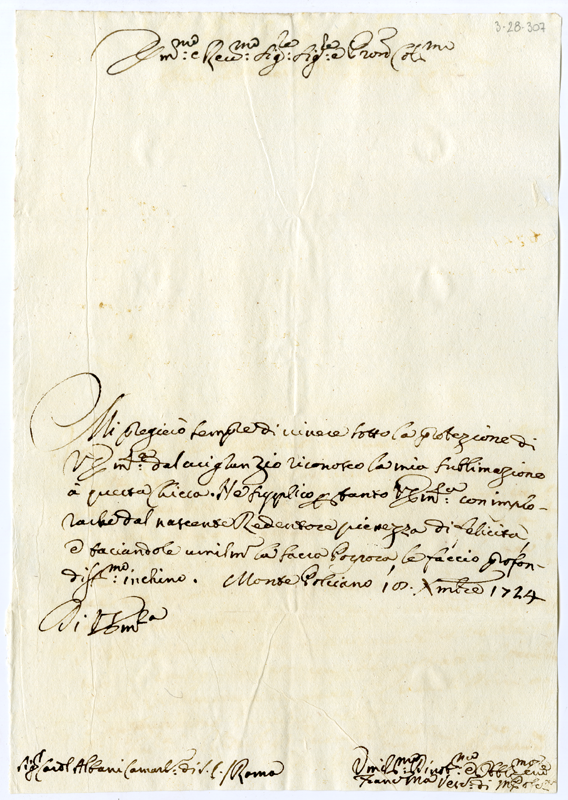 3-28-307
Em:mo e Reu:mo Sig:re Sig:re e Pron Col:mo
Mi pregierò sempre di vivere sotto la protezione di
V Em:za dal cui glanzio riconosco la mia sublimazione
à questa Chiesa. Ne supplico p tanto V Em:za con implo-
rarle dal nascente Redentore pienezza di felicità,
e baciandole umilmte la sacra Porpora le faccio profon-
diss:mo inchino. Monte Polciano 18. Xmbre 1724
Di V Em:za
Sig:r Card Albani Camarl:o di S. C. / Roma
Umil:mo Divot:mo e Obblig:mo
Franc Ma Vesc: di M Polc:no